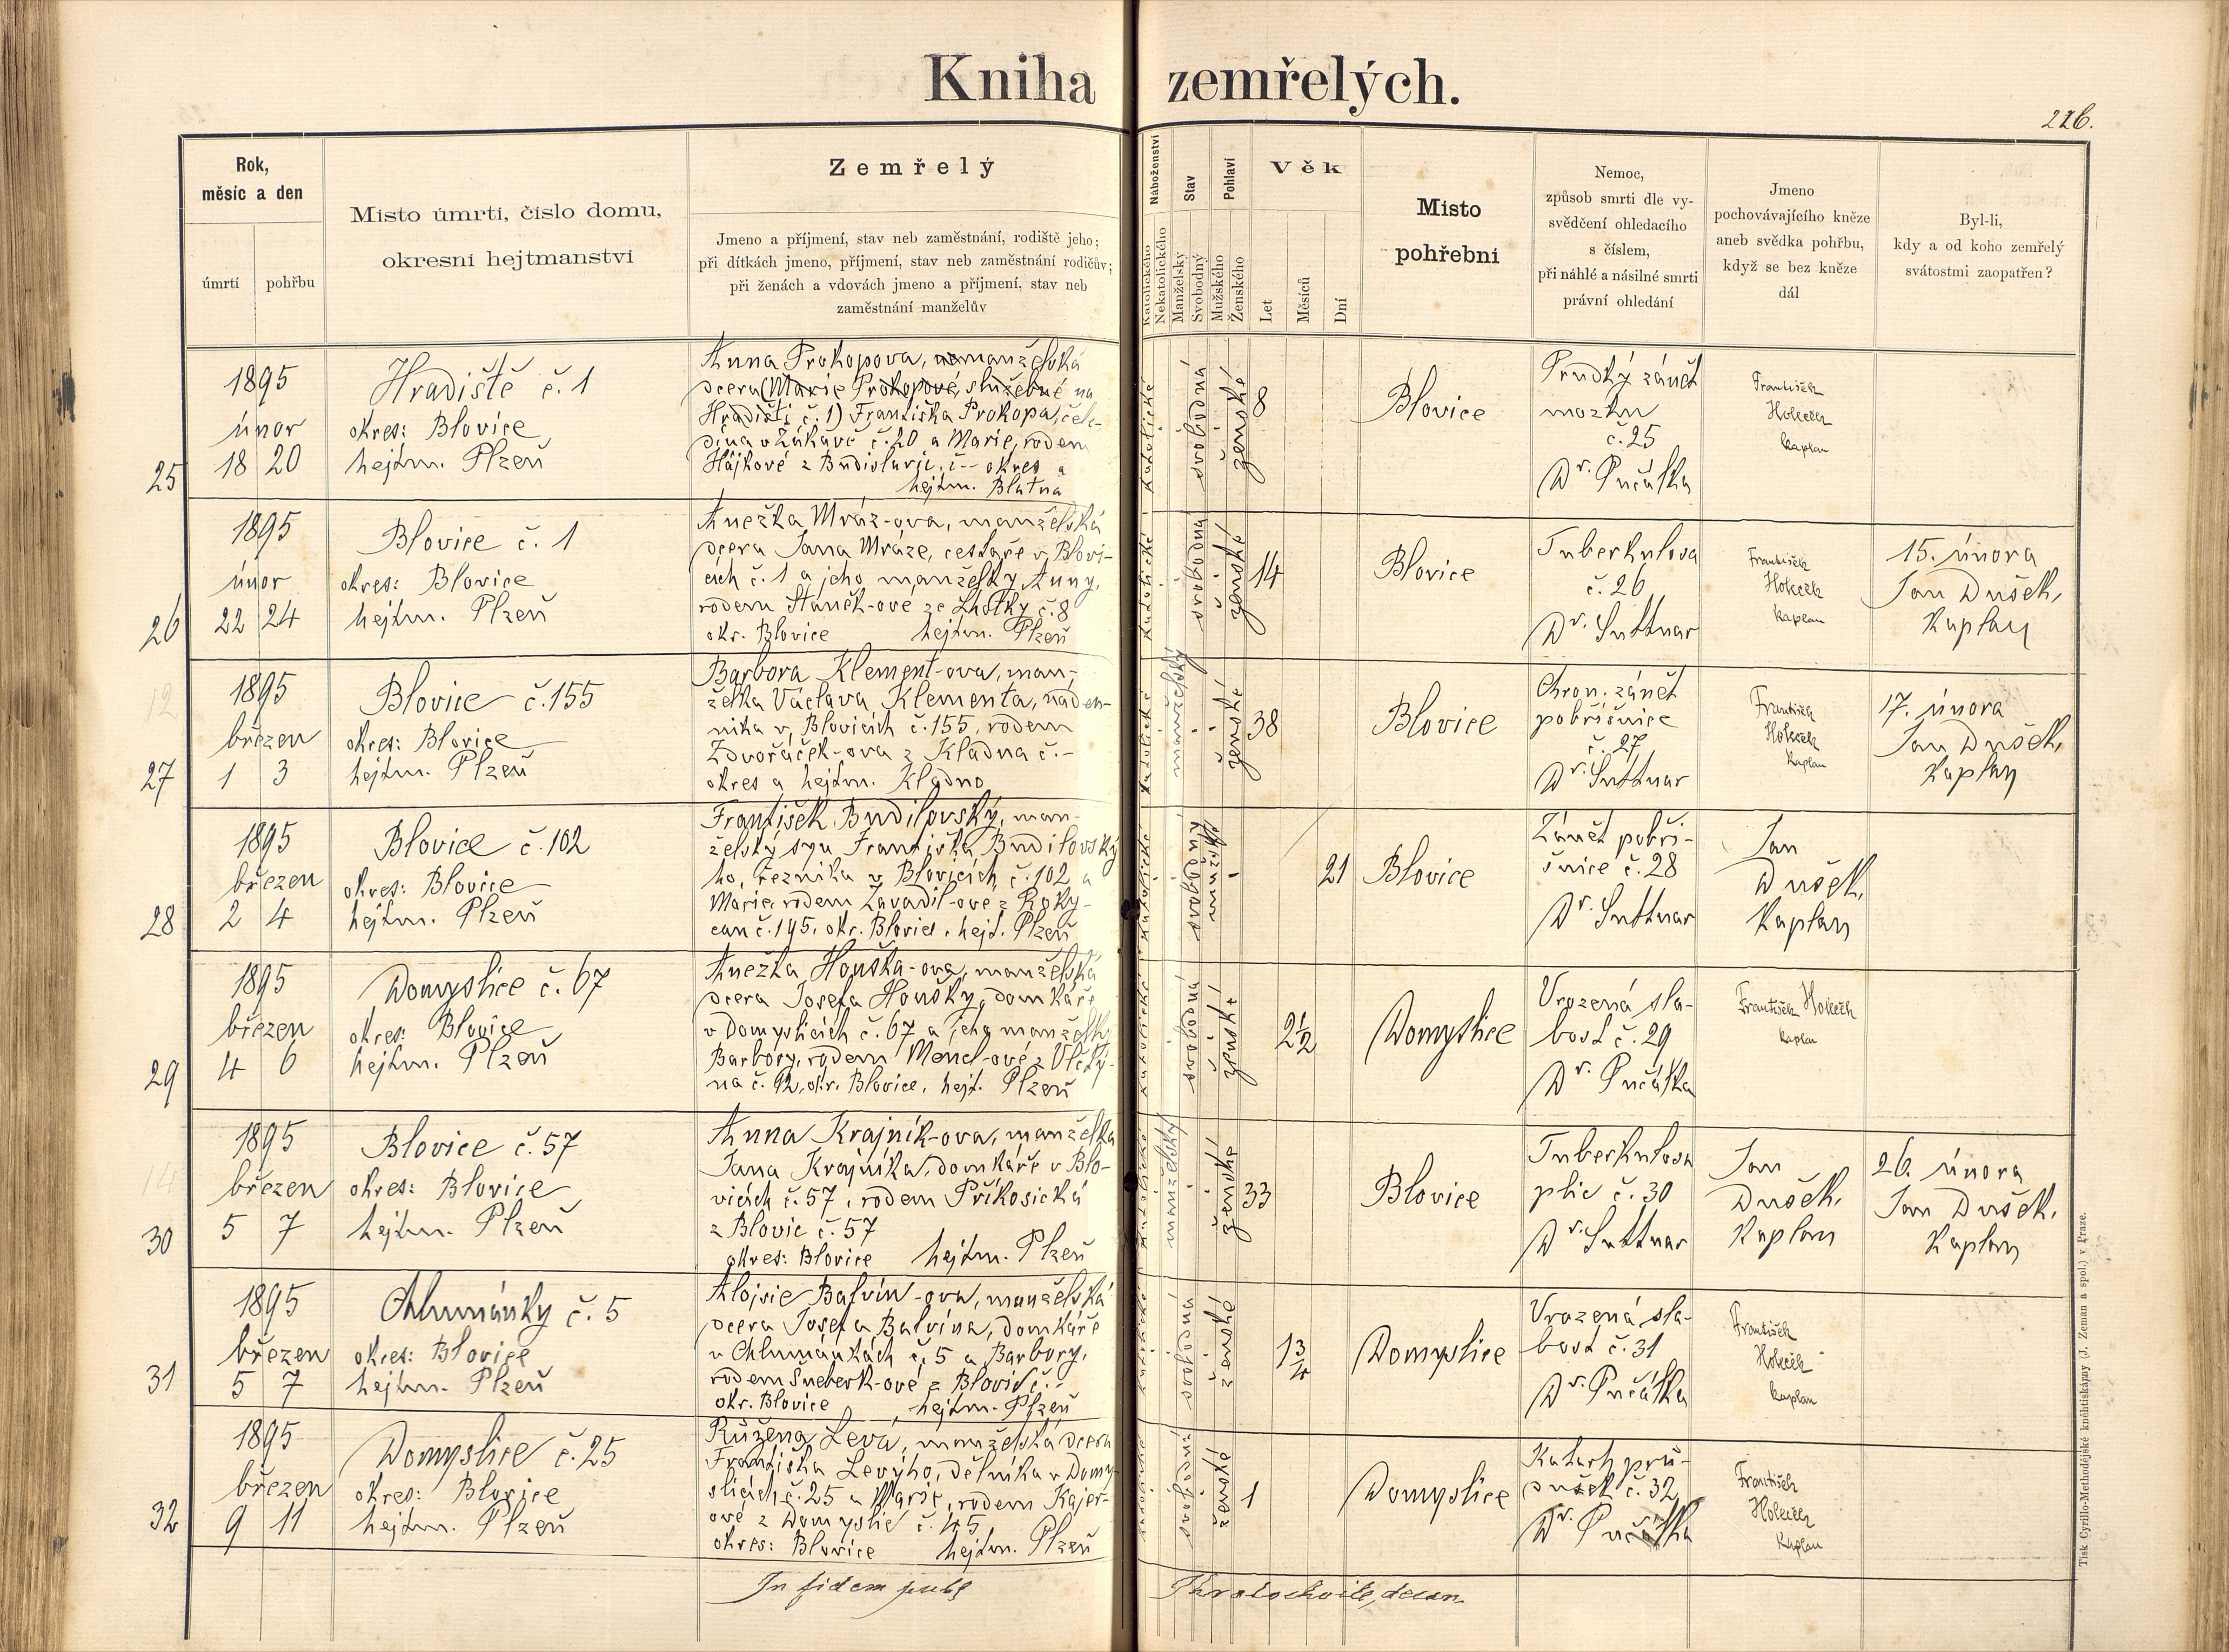 Kniha zemřelých.
226.
Rok,
měsíc a den
úmrtí
pohřbu
Misto úmrtí, číslo domu,
okresní hejtmanství
Zemřelý
Jmeno a příjmení, stav neb zaměstnání, rodiště jeho;
při dítkách jmeno, příjmení, stav neb zaměstnání rodičův;
při ženách a vdovách jmeno a příjmení, stav neb
zaměstnání manželův
Náboženství
Katolického
Nekatolického
Stav
Manželsky
Svobodný
Pohlaví
Mužského
Ženského
Věk
Let
Měsíců
Dní
Misto
pohřebni
Nemoc,
způsob smrti dle vy-
svědčení ohledacího
s číslem,
při náhlé a násilné smrti
právní ohledání
Jmeno
pochovávajícího kněze
aneb svědka pohřbu,
když se bez kněze
dál
Byl-li,
kdy a od koho zemřelý
svátostmi zaopatřen?
25
1895
únor
18 20
Hradiště č. 1
okres: Blovice
hejtm. Plzeň
Anna Prokopova, manželská
dcera (Marie Prokopové, služebné na
Hradišti č. 1) Františka Prokopa, čele-
dína v Žákavě č. 20 a Marie, rodem
Hájkové z Budislavic, č - okres a
hejtm. Blatná
katolické
svobodná
ženské
8
Blovice
Prudký zánět
mozku
č. 25
Dr. Pučálka
František
Holeček
kaplan
26
1895
únor
22 24
Blovice č. 1
okres: Blovice
hejtm. Plzeň
Anežka Mráz-ova, manželská
dcera Jana Mráze, cestaře v Blovi-
cích č. 1 a jeho manželky Anny,
rodem Staněk-ové ze Lhotky č. 8
okr. Blovice hejtm. Plzeň
katolické
svobodná
ženské
14
Blovice
Tuberkulosa
č. 26
Dr. Suttnar
František
Holeček
kaplan
15. února
Jan Dušek,
Kaplan
27
1895
březen
1 3
Blovice č. 155
okres: Blovice
hejtm. Plzeň
Barbora Klement-ova, man-
želka Václava Klementa, náden-
níka v Blovicích č. 155, rodem
Zdvořáček-ova z Kladna č. -
okres a hejtm. Kladno
katolické
manželský
ženské
38
Blovice
Chron. zánět
pobřišnice
č. 27
Dr. Suttnar
František
Holeček
Kaplan
17. února
Jan Dušek,
Kaplan
28
1895
březen
2 4
Blovice č. 102
okres: Blovice
hejtm. Plzeň
František Budilovský, man-
želský syn Františka Budilovský
ho, řezníka v Blovicích č. 102 a
Marie, rodem Zavadil-ové z Roky-
can č. 195, okr. Blovice, hejt. Plzeň
katolické
svobodný
mužské
21
Blovice
Zánět pobři-
šnice č. 28
Dr. Suttnar
Jan
Dušek,
Kaplan
29
1895
březen
4 6
Domyslice č. 67
okres: Blovice
hejtm. Plzeň
Anežka Houška-ova, manželská
dcera Josefa Houšky, domkáře
v Domyslicích č. 67 a jeho manželky
Barbory, rodem Mencl-ové z Vlčtý-
na č. 92, okr. Blovice, hejt. Plzeň
katolické
svobodná
ženské
2 1/2
Domyslice
Vrozená sla-
bost č. 29
Dr. Pučálka
František Holeček
kaplan
30
1895
březen
5 7
Blovice č. 57
okres: Blovice
hejtm. Plzeň
Anna Krajník-ova, manželka
Jana Krajníka, domkáře v Blo-
vicích č. 57, rodem Příkosická
z Blovic č. 57
okres: Blovice hejtm. Plzeň
katolické
manželský
ženské
33
Blovice
Tuberkulosa
plic č. 30
Dr. Suttnar
Jan
Dušek,
Kaplan
26. února
Jan Dušek,
Kaplan
31
1895
březen
5 7
Chlumánky č. 5
okres: Blovice
hejtm. Plzeň
Aloisie Balvín-ova, manželská
dcera Josefa Balvína, domkáře
v Chlumánkách č. 5 a Barbory,
rodem Šneberk-ové z Blovic č. -
okr. Blovice hejtm. Plzeň
katolické
svobodná
ženské
1 3/4
Domyslice
Vrozená sla-
bost č. 31
Dr. Pučálka
František
Holeček
kaplan
32
1895
březen
9 11
Domyslice č. 25
okres: Blovice
hejtm. Plzeň
Růžena Levá, manželská dcera
Františka Levýho, dělníka v Domy-
slicích č. 25 a Marie, rodem Kajer-
ové z Domyslic č. 45
okres: Blovice hejtm. Plzeň
katolické
svobodná
ženské
1
Domyslice
Katarh prů-
dušek č. 32
Dr. Pučálka
František
Holeček
Kaplan
In fidem publ
decan
Tisk Cyrillo-Methodějské knihtiskárny (J. Zeman a spol.) v Praze.